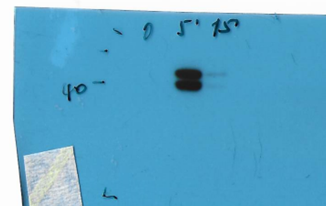 0 5' 15'
40 -